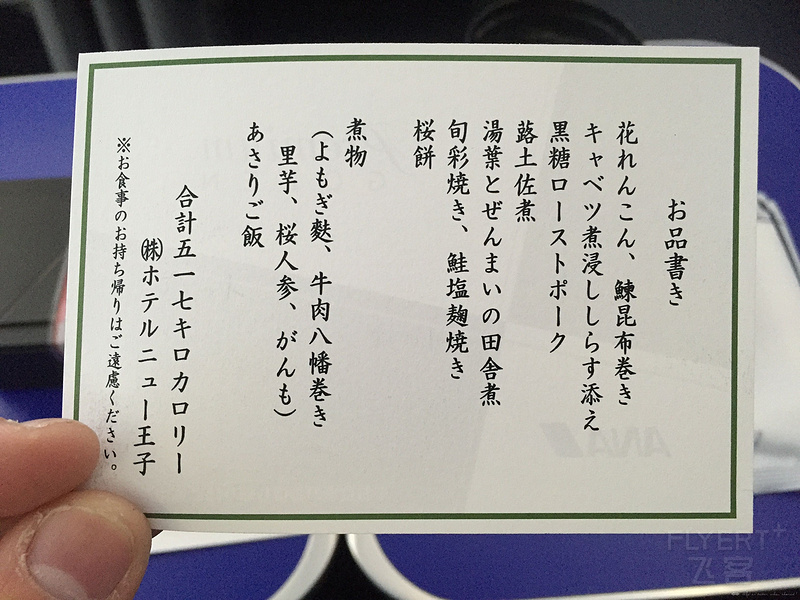 お品書き
花れんこん、鰊昆布巻き
キャベツ煮浸ししらす添え
黒糖ローストポーク
蕗土佐煮
湯葉とぜんまいの田舎煮
旬彩焼き、鮭塩麹焼き
桜餅
煮物
(よもぎ麩、牛肉八幡巻き
里芋、桜人参、がんも)
あさりご飯
合計五一七キロカロリー
㈱ホテルニュー王子
※お食事のお持ち帰りはご遠慮ください。
ANA
FLYERT+
飞客